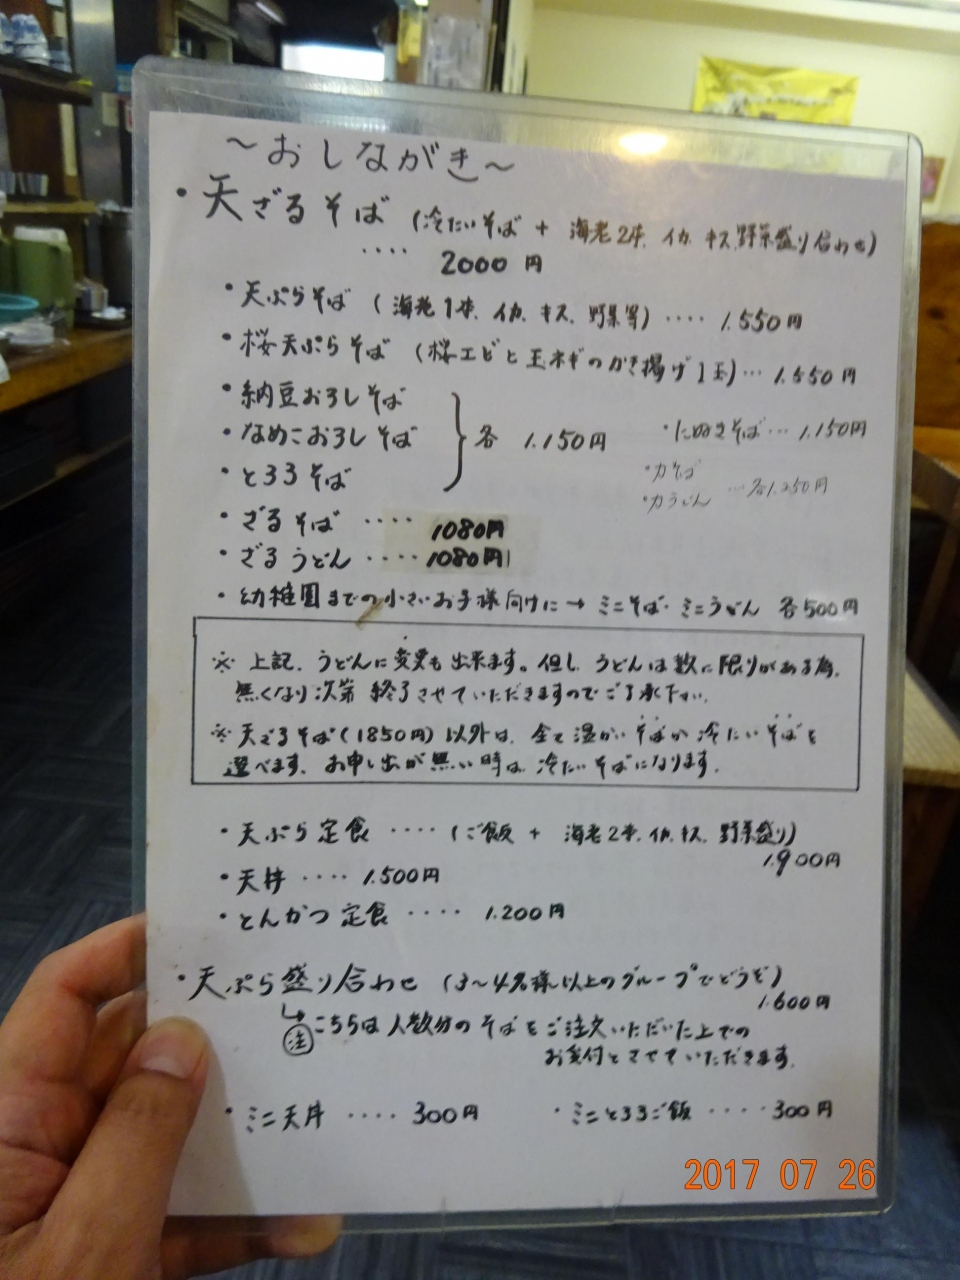 ～おしながき～
・天ざるそば (冷たいそば + 海老2本、イカ、キス、野菜盛り合わせ)
‥‥ 2000円
・天ぷらそば (海老1本、イカ、キス、野菜等) ‥‥ 1.550円
・桜天ぷらそば (桜エビと玉ネギのかき揚げ1玉)… 1.550円
・納豆おろしそば
・なめこおろしそば } 各 1.150円
・とろろそば
・たぬきそば… 1.150円
・力そば
・力うどん …各1.250円
・ざるそば ‥‥ 1080円
・ざるうどん ‥‥ 1080円
・幼稚園までの小さいお子様向けに → ミニそば・ミニうどん 各500円
※ 上記、うどんに変更も出来ます。但し、うどんは数に限りがある為、
無くなり次第 終了させていただきますのでご了承下さい。
※ 天ざるそば(1850円)以外は、全て温かいそばか冷たいそばを
選べます。お申し出が無い時は、冷たいそばになります。
・天ぷら定食 ‥‥ (ご飯 + 海老2本、イカ、キス、野菜盛り)
1.900円
・天丼 ‥‥ 1.500円
・とんかつ定食 ‥‥ 1.200円
・天ぷら盛り合わせ (3～4名様以上のグループでどうぞ)
1.600円
↳ 注 こちらは人数分のそばをご注文いただいた上での
お受付とさせていただきます。
・ミニ天丼 ‥‥ 300円
・ミニとろろご飯 ‥‥ 300円
2017 07 26